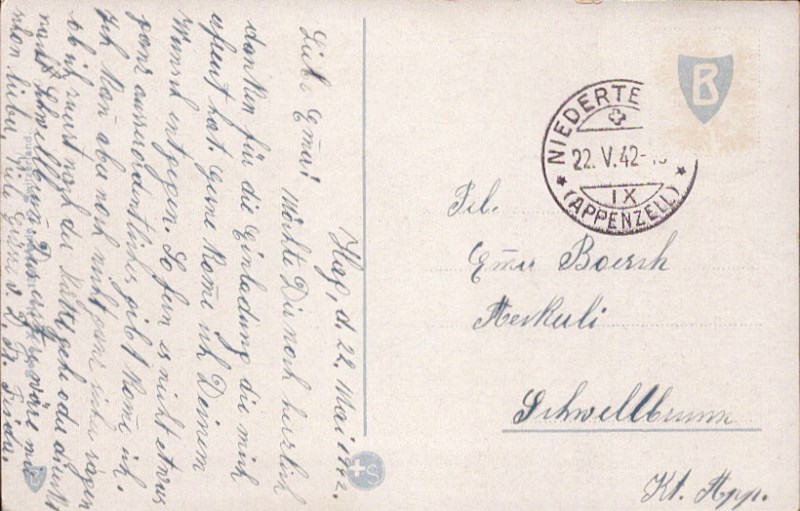 Hag, d. 22. Mai 1942.
Liebe Emai! Möchte Dir noch herzlich
danken für die Einladung die mich
gefreut hat. Gerne kome ich Deinem
Wunsch entgegen. So fern es nicht etwas
ganz ausserordentliches gibt kome ich.
Ich kan aber noch nicht ganz sicher sagen
ob ich zuerst noch zu gehe oder direkt
nach Schwellbrunn
Viele Grüsse v. Frida.
B
NIEDERTE
22. V. 42
IX
(APPENZELL)
Frl.
Ema Boersch
Aeskuli
Schwellbrunn
Kt. App.
S